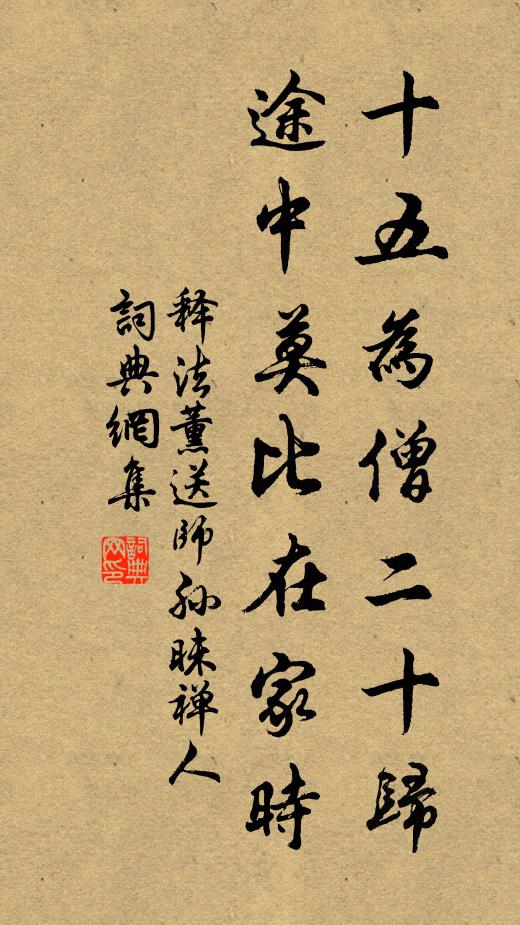 十五為僧二十歸
途中莫比在家時
释法薰送師孙睐禅人
詞典網集
詞典
网印